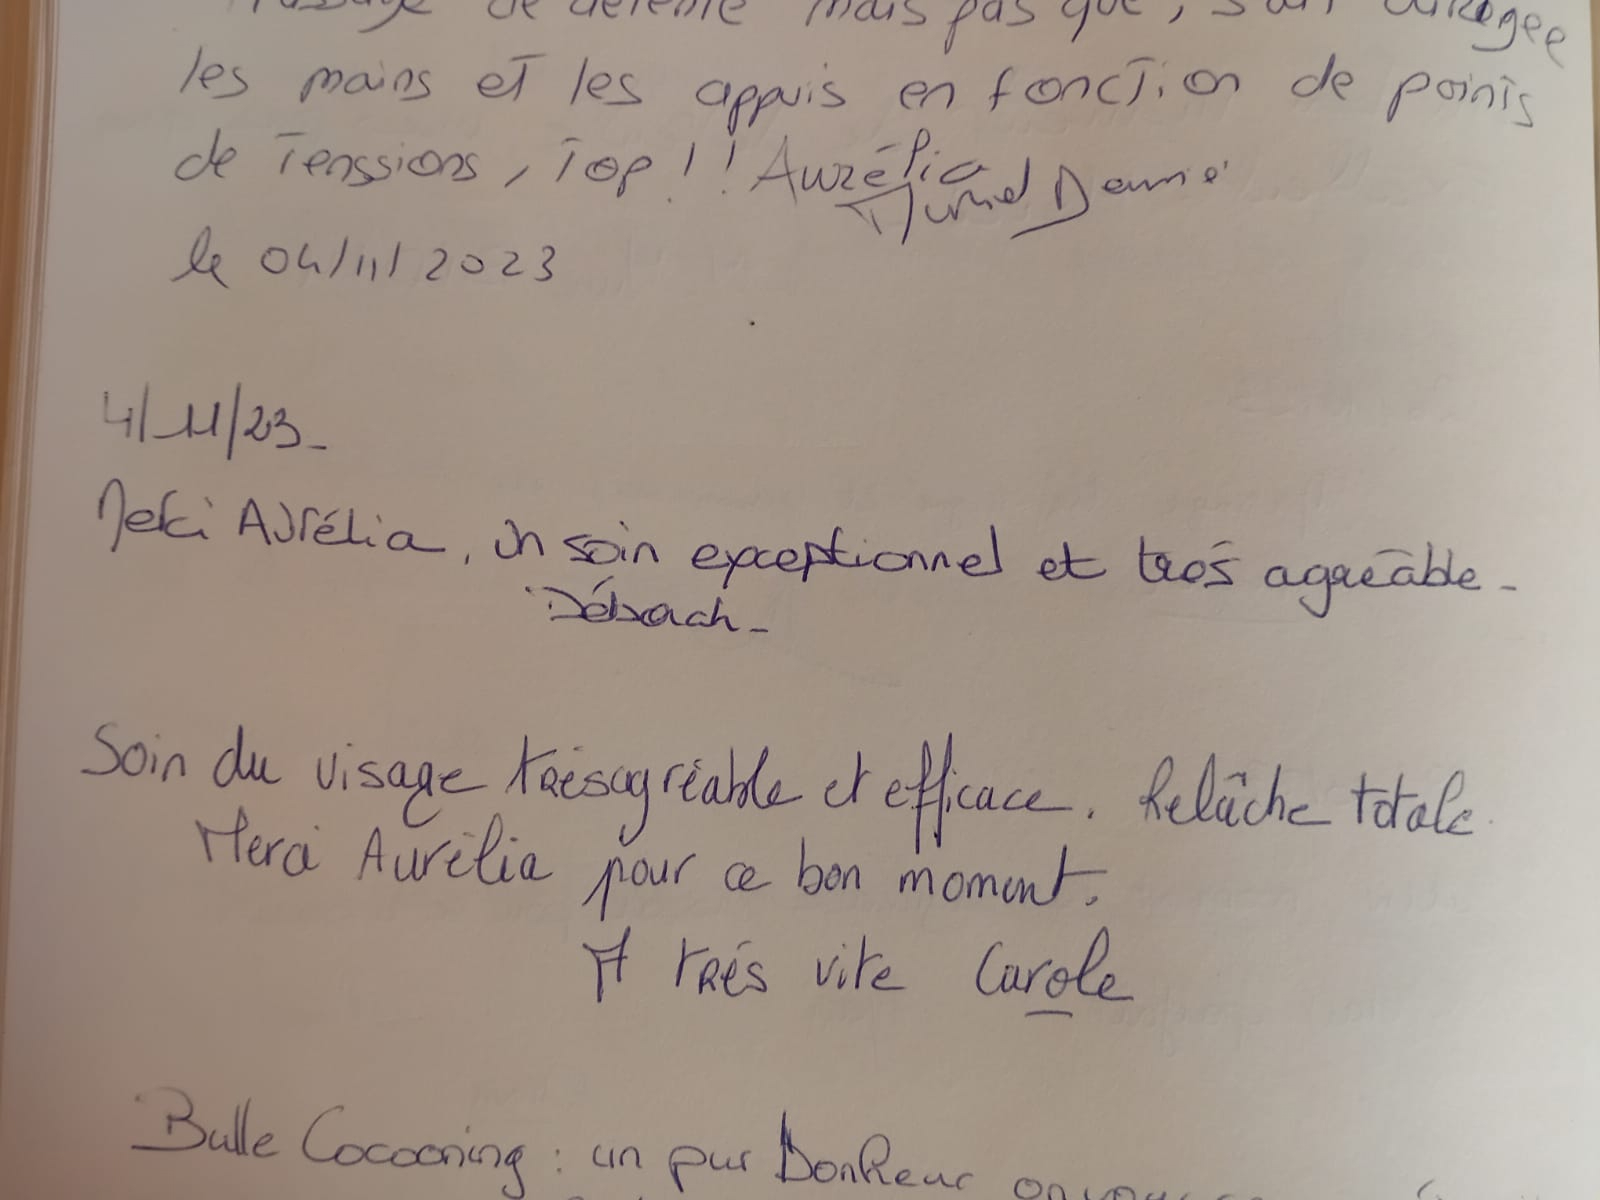 de détente mais pas que, sait
les mains et les appuis en fonction de points
de Tenssions, Top!! Aurélia
le 04/11/2023
4/11/23_
Merci Aurélia, un soin exceptionnel et très agréable_
Soin du visage trés agréable et efficace. Relâche totale.
Merci Aurélia pour ce bon moment.
A trés vite Carole
Bulle Cocooning : un pur Bonheur